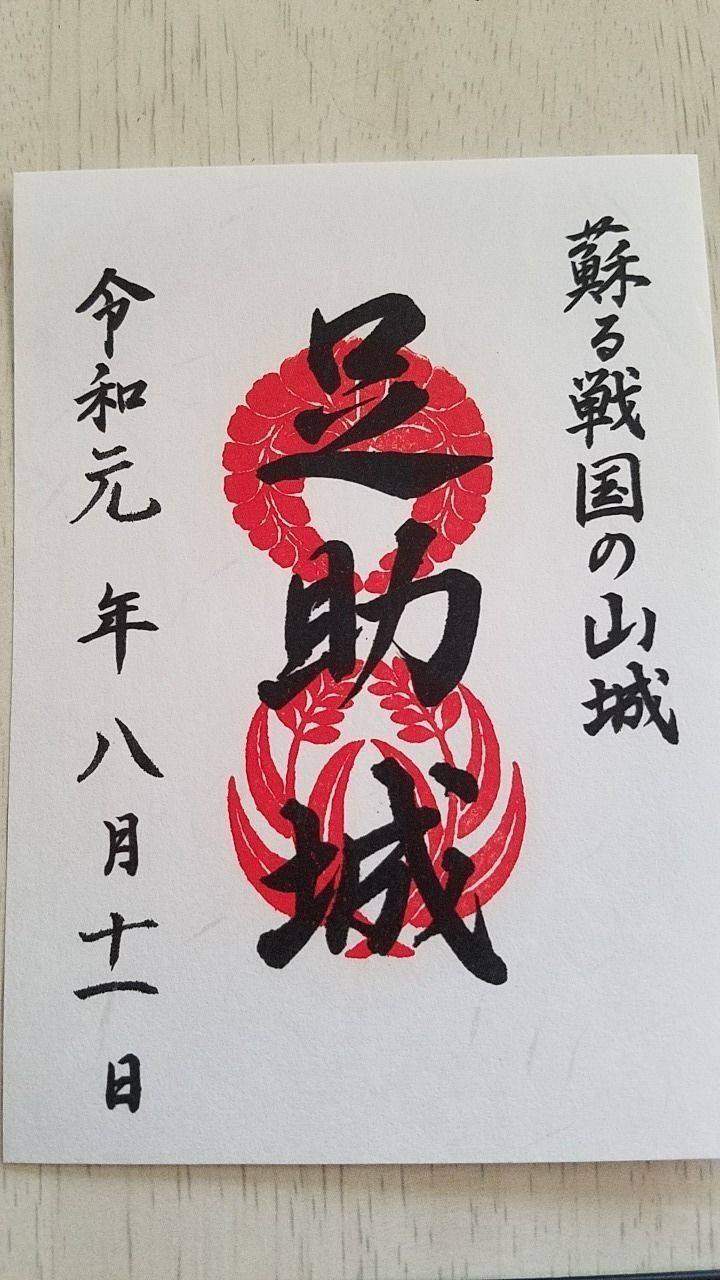 蘇る戦国の山城
足助城
令和元年八月十一日